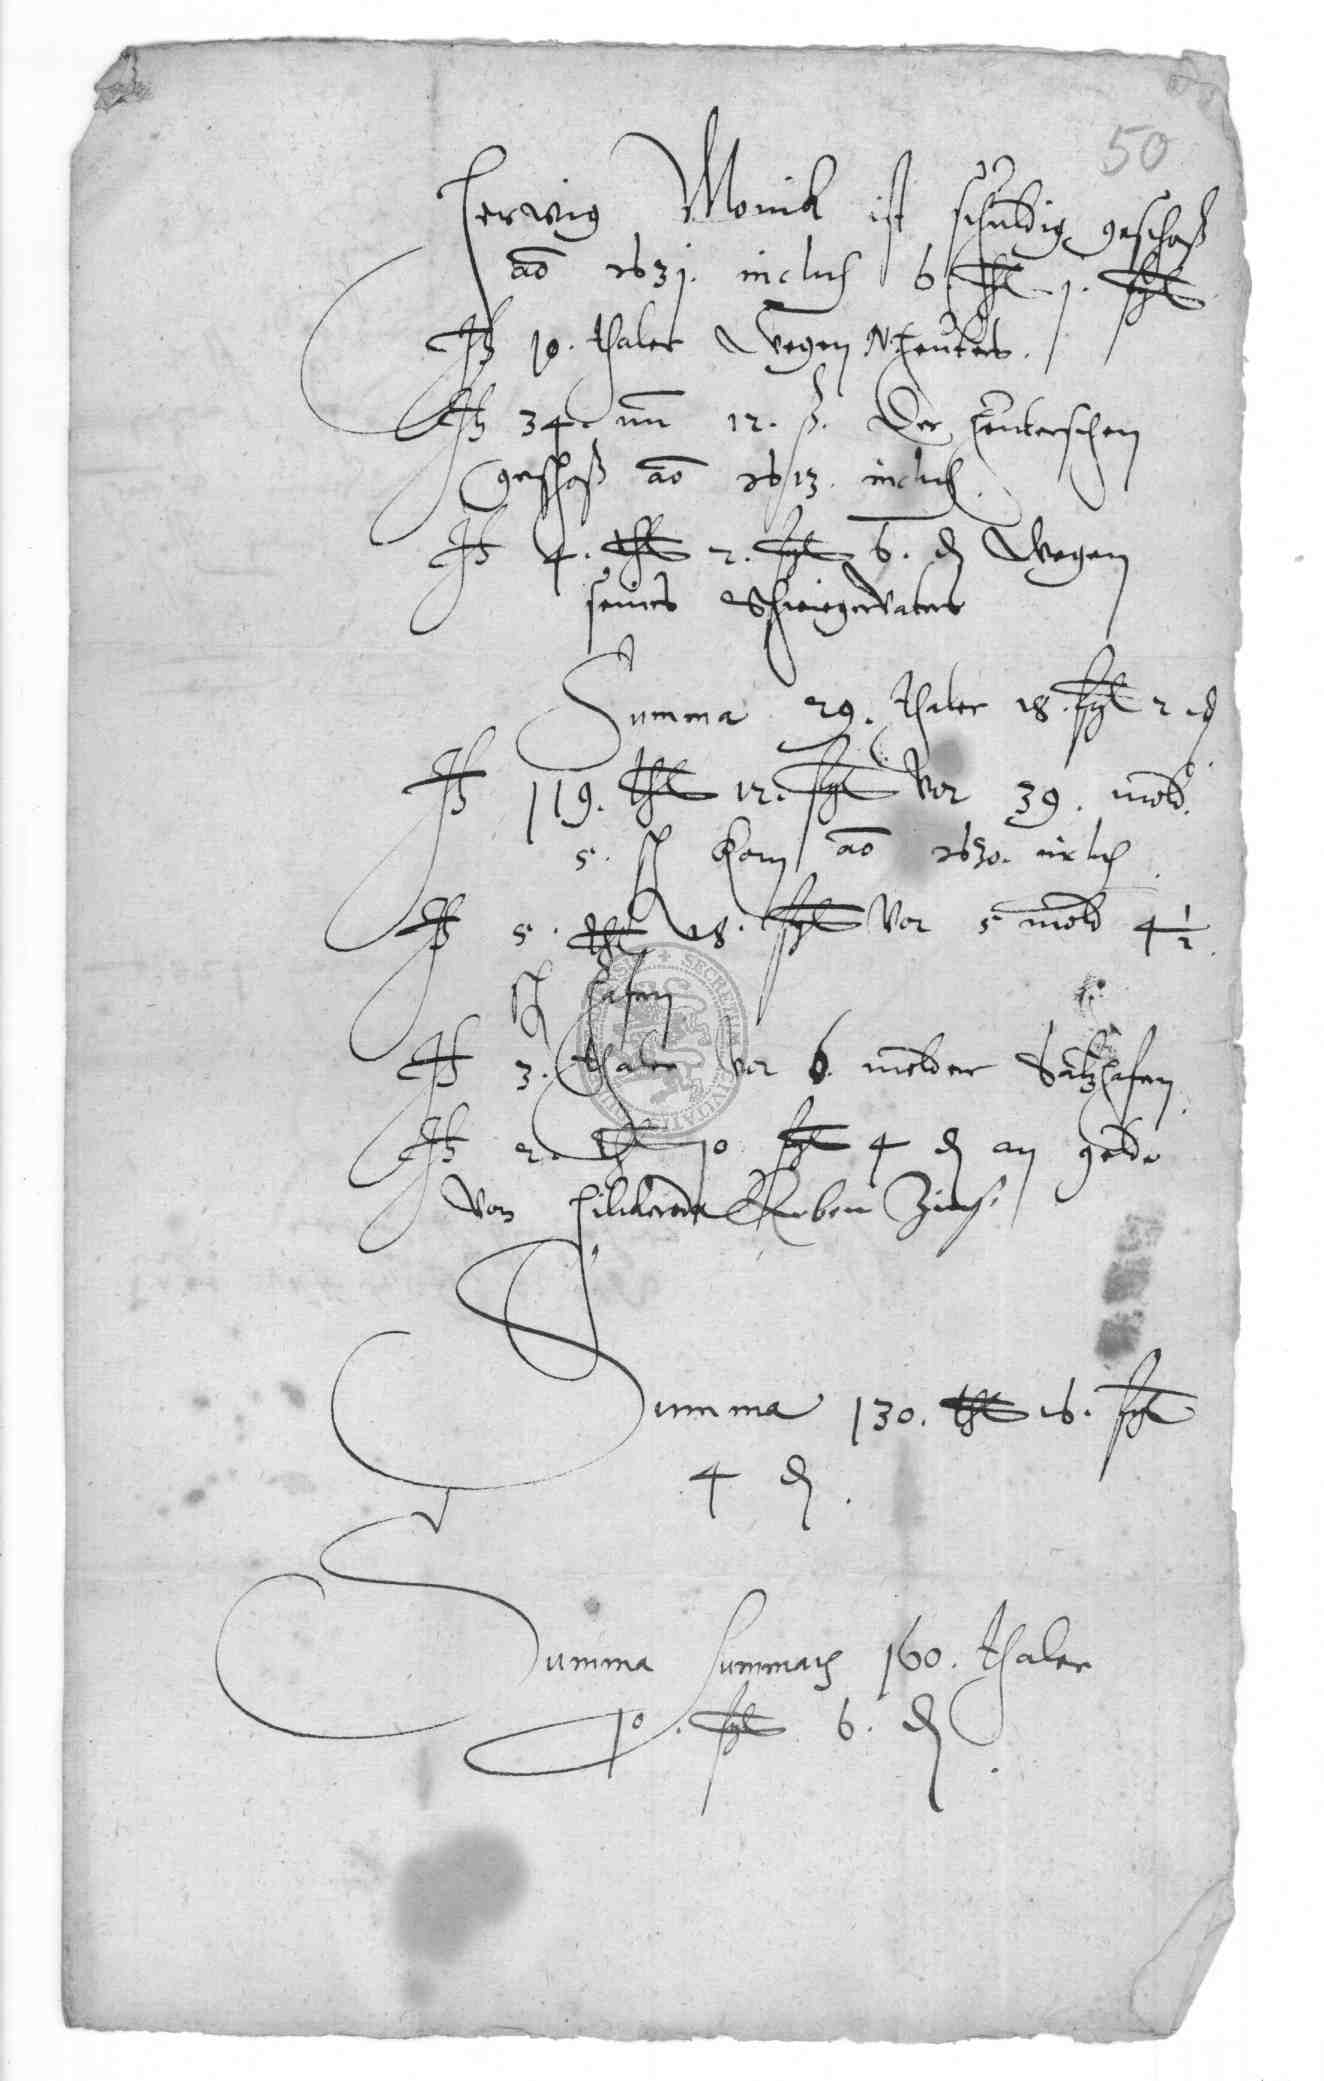 50
Herwig Monik ist schuldig geschoß
ao 1631. inclus 6. thl 1. sgl
It 10. thaler Wegen N Henkels.
It 34. 12. ß. Der Henkerschen
geschoß ao 1613. inclus.
It 4. thl 2. sgl 6. d Wegen
seines Schwiegervaters
Summa 29. thaler 18. sgl 2 d
It 119. thl 12. sgl Vor 39. mold.
5. sch Korn ao 1630. inclus
It 5. thl 18. sgl Vor 5 mold 4 1/2.
sch Hafern
It 3. thaler Vor 6. molder Saltzhafern
It 2. thl 10 sgl 4 d an gelde
Von Erben Zinß.
Summa 130. thl 16. sgl
4 d.
Summa Summarum 160. thaler
10. sgl 6. d.
SECRETUM CIVITATIS